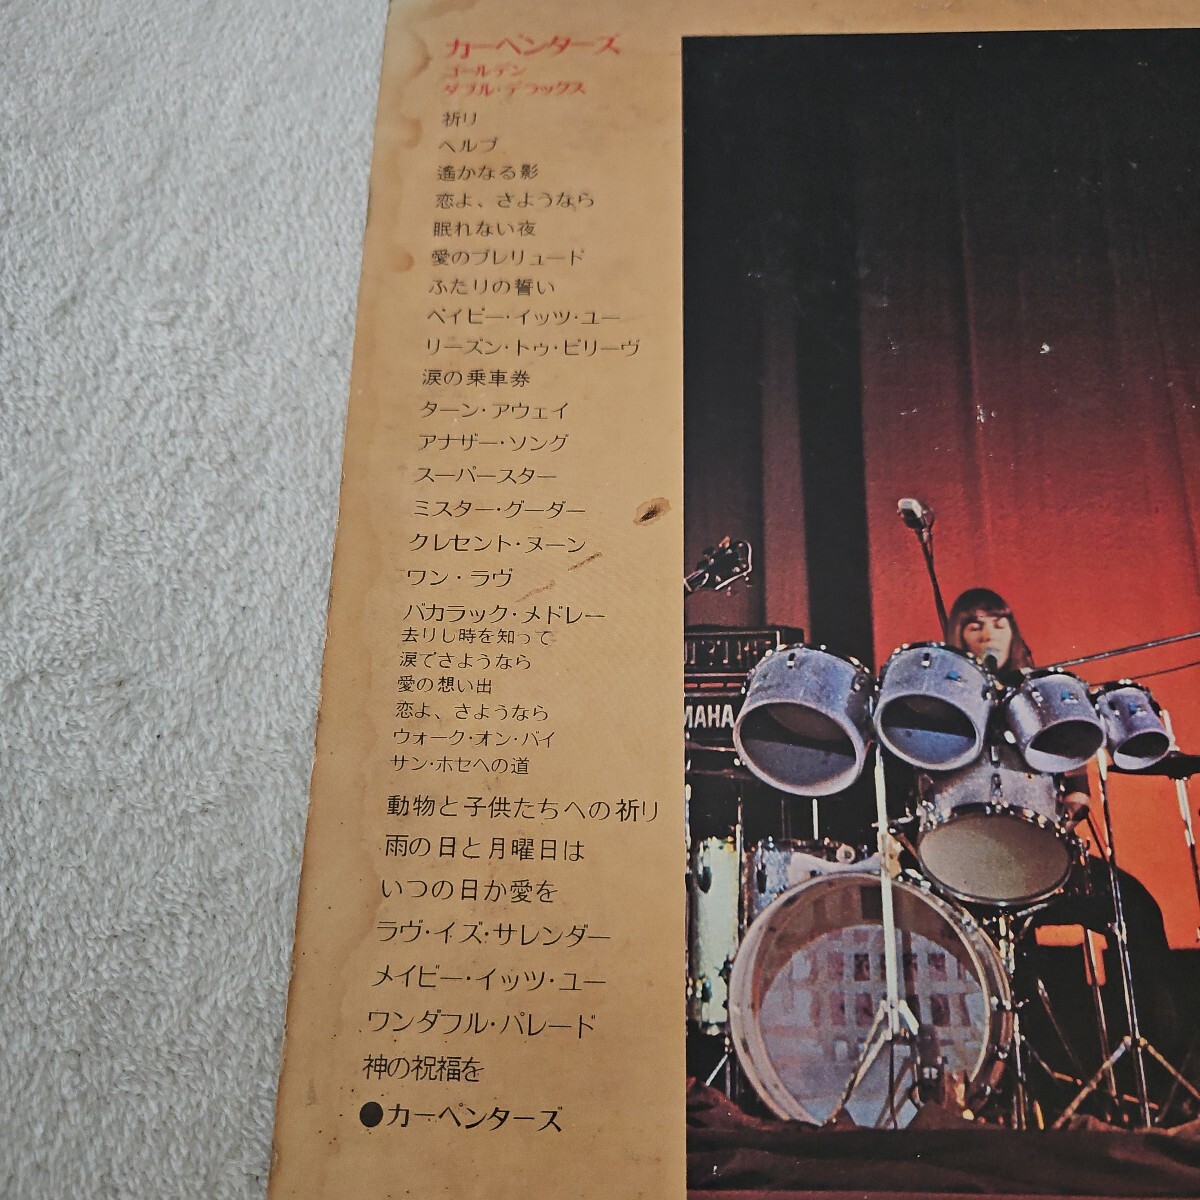 カーペンターズ
ゴールデン
ダブル・デラックス
祈り
ヘルプ
遙かなる影
恋よ、さようなら
眠れない夜
愛のプレリュード
ふたりの誓い
ベイビー・イッツ・ユー
リーズン・トゥ・ビリーヴ
涙の乗車券
ターン・アウェイ
アナザー・ソング
スーパースター
ミスター・グーダー
クレセント・ヌーン
ワン・ラヴ
バカラック・メドレー
去りし時を知って
涙でさようなら
愛の想い出
恋よ、さようなら
ウォーク・オン・バイ
サン・ホセへの道
動物と子供たちへの祈り
雨の日と月曜日は
いつの日か愛を
ラヴ・イズ・サレンダー
メイビー・イッツ・ユー
ワンダフル・パレード
神の祝福を
●カーペンターズ
MAHA